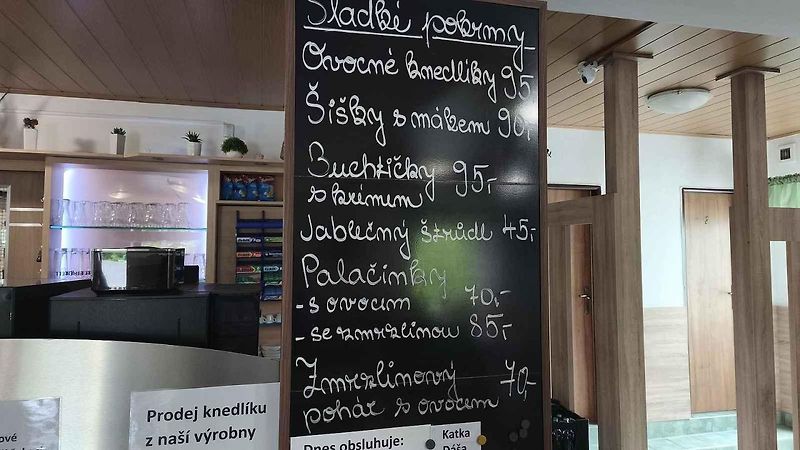 Sladké pokrmy
Ovocné knedlíky 95
Šišky s mákem 90,-
Buchtičky
s krémem 95,-
Jablečný štrůdl 45,-
Palačinky
- s ovocem 70,-
- se zmrzlinou 85,-
Zmrzlinový 70,-
pohár s ovocem
Prodej knedlíku
z naší výrobny
Dnes obsluhuje: Katka
Dáša